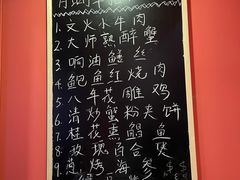 1. 文火小牛肉
2. 大师熟醉蟹
3. 响油鳝丝
4. 鲍鱼红烧肉
5. 八年花雕鸡
6. 清炒蟹粉夹饼
7. 桂花蒸鲳鱼
8. 玫瑰百合煲
9. 葱烤海参